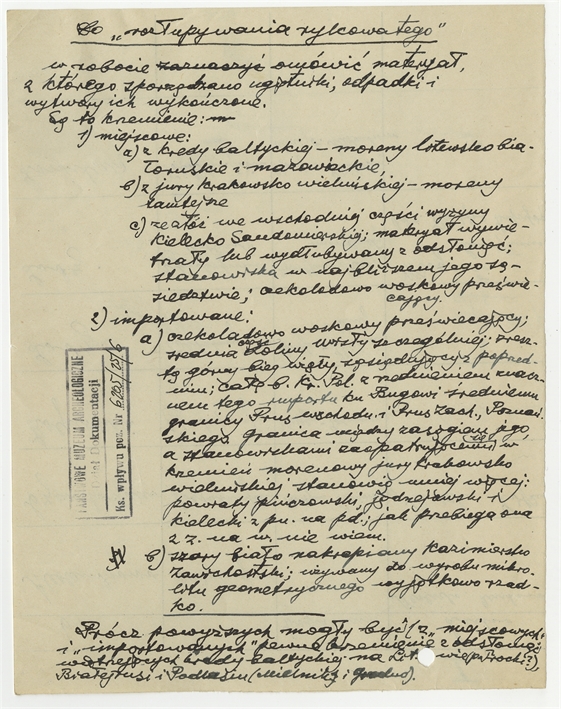 Co "rozłupywania rylcowatego"
w robocie zaznaczyć omówić materyał,
z którego sporządzano rylce, odpadki i
wytwory ich wykończone.
Są to krzemienie:
1) miejscowe:
a) z kredy bałtyckiej – moreny litewsko bia-
łoruskie i mazowieckie
b) z jury krakowsko wieluńskiej – moreny
tamtejsze
c) ze złóż we wschodniej części wyżyny
Kielecko Sandomierskiej; materyał wywie-
trzały lub wydłubywany z odsłonięć;
stanowiska w najbliższem jego są-
siedztwie; czekoladowo woskowy prześwie-
cający.
2) importowane:
a) czekoladowo woskowy przeświecający;
średnia część doliny Wisły szczególniej; zresz-
tą górny bieg Wisły, sąsiedujący z poprzed-
nim; cała b. Kr. Pol. z rzednieniem znacz-
nem tego importu ku Bugowi średniemu
granicy Prus wschodu. i Prus Zach. Poznań-
skiego. Granica między zasięgiem jego
a stanowiskami zaopatrującemi się w
krzemień morenowy jury krakowsko
wieluńskiej stanowią mniej więcej:
powiaty pińczowski, jędrzejowski i
kielecki z pn. na pd.; jak przebiega ona
z z. na w. nie wiem.
b) szary biało nakrapiany kazimiersko
zawichostski; używany do wyrobu mikro-
litu geometrycznego wyjątkowo rzad-
ko.
Prócz powyższych mogły być (z "miejscowych"
i "importowanych" pewne krzemienie z odsłonięć
kredy bałtyckiej na Lit.
Białejrusi i Podlasiu (Mielnik i Grodno).
PAŃSTWOWE MUZEUM ARCHEOLOGICZNE
Dział Dokumentacji
Ks. wpływu poz. Nr 6205/25/6